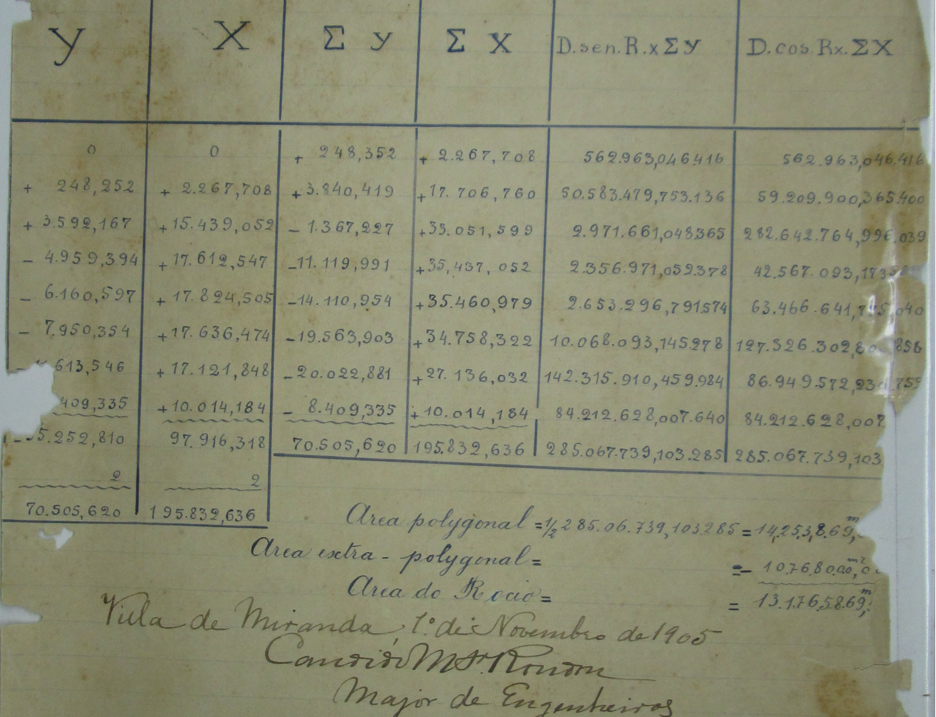 y X Σ y Σ X D.sen.R.x Σ y D.cos.Rx.ΣX
0 0 + 248,352 + 2.267,708 562.963,046,416 562.963,046,416
+ 248,252 + 2.267,708 + 3.840,419 + 17.706,760 50.583.479,753.136 59.209.900,365.400
+ 3.592,167 + 15.439,052 - 1.367,227 + 33.051,599 2.971.661,048365 282.642.764,996,039
- 4.959,394 + 17.612,547 - 11.119,991 + 35,437,052 2.356.971,052378 42.567.093,
- 6.160,597 + 17.824,505 - 14.110,954 + 35.460,979 2.653.296,791574 63.466.641,
- 7.950,354 + 17.636,474 - 19.563,903 + 34.758,322 10.068.093,145278 127.326.302,
613,546 + 17.121,848 - 20.022,881 + 27.136,032 142.315.910,459.984 86.949.572,
409,335 + 10.014,184 - 8.409,335 + 10.014,184 84.212.628,007.640 84.212.628,007
35.252,810 97.916,318 70.505,620 195.832,636 285.067.739,103.285 285.067.739,103
2 2
70.505,620 195.832,636
Area polygonal = 1/2 285.06.739,103285 = 14,253,8.69,m
Area extra-polygonal = = - 1.076.80.00,
Area do Rocio = = 13.176,58.69,m
Villa de Miranda, 1º de Novembro de 1905
Candido M. S. Rondon
Major de Engenheiros